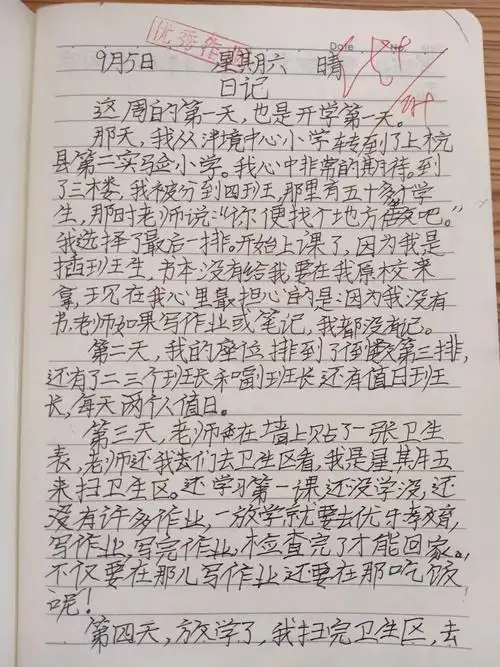 优秀作
Date No
9月5日 星期六 晴
日记
这周的第一天,也是开学第一天。
那天,我从津境中心小学转到了上杭
县第二实验小学。我心中非常的期待。到
了三楼,我被分到四班,那里有五十多个学
生,那时老师说:“你便找个地方坐吧。”
我选择了最后一排。开始上课了,因为我是
插班生,书本没有给我,要在我原校来
拿,现在我心里最担心的是:因为我没有
书,老师如果写作业或笔记,我都没有记。
第二天,我的座位排到了倒数第三排,
还有了二三个班长和副班长还有值日班
长,每天两个人值日。
第三天,老师在墙上贴了一张卫生
表,老师还我去们去卫生区看,我是星其年五
来扫卫生区。还学习第一课还没学没,还
没有许多作业,一放学就要去优乐教育,
写作业,写完作业,检查完了才能回家。
不仅要在那儿写作业还要在那吃饭
呢!
第四天,放学了,我扫完卫生区,去